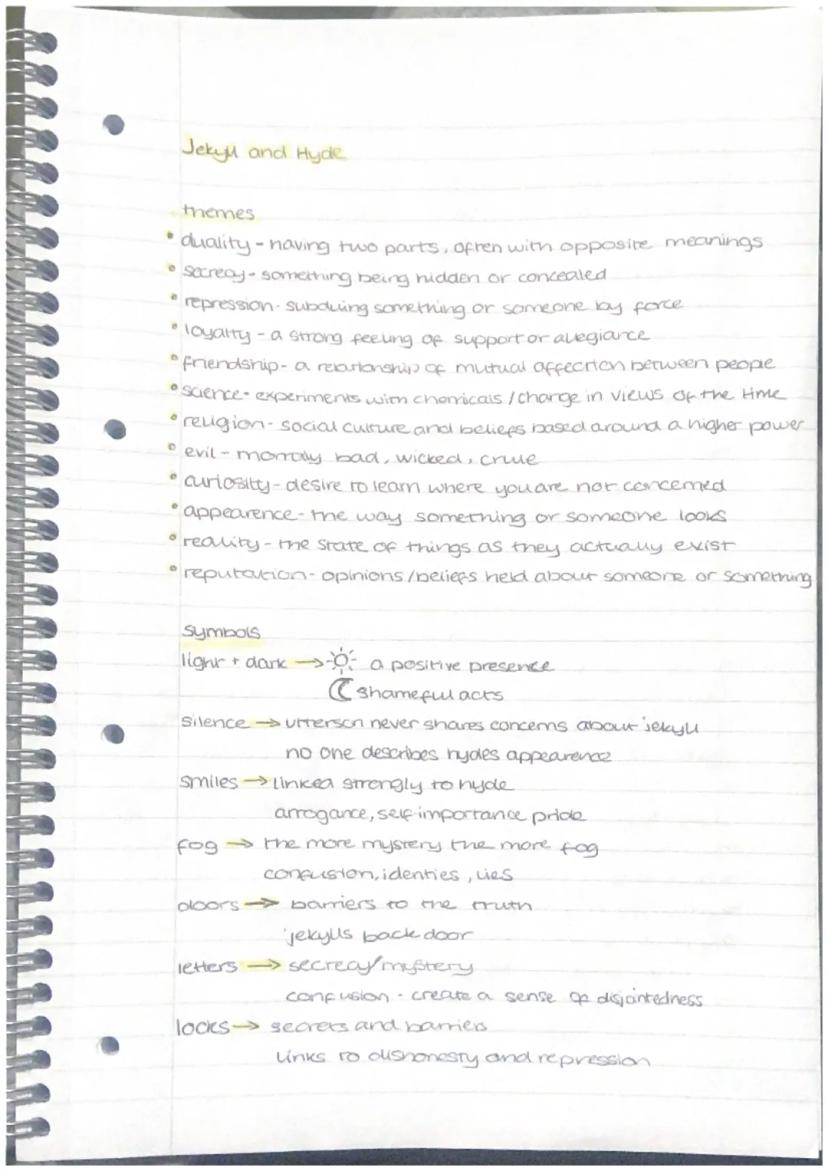 Jekyll and Hyde
themes
• duality - having two parts, often with opposite meanings
• secrecy - something being hidden or concealed
• repression - subduing something or someone by force
• loyalty - a strong feeling of support or allegiance
• friendship - a relationship of mutual affection between people
• science - experiments with chemicals / change in views of the time
• religion - social culture and beliefs based around a higher power
• evil - morally bad, wicked, crule
• curiosity - desire to learn where you are not concerned
• appearence - the way something or someone looks
• reality - the state of things as they actually exist
• reputation - opinions / beliefs held about someone or something
symbols
light + dark → a positive presence
shameful acts
silence → utterson never shares concerns about jekyll
no one describes hydes appearence
smiles → linked strongly to hyde
arrogance, self-importance pride
fog → the more mystery the more fog
confusion, identies, lies
doors → barriers to the truth
jekylls back door
letters → secrecy/mystery
confusion - create a sense of disjointedness
locks → secrets and barriers
links to dishonesty and repression